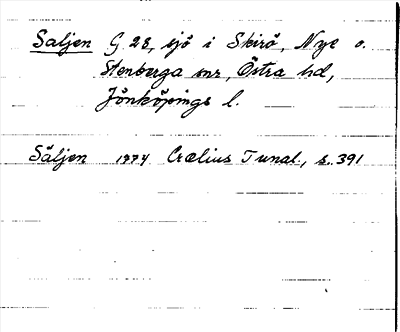 Saljen G 28, sjö i Skirö, Nye o.
Stenberga snr, Östra hd,
Jönköpings l.
Säljen 1774 Crælius Tunal., s. 391